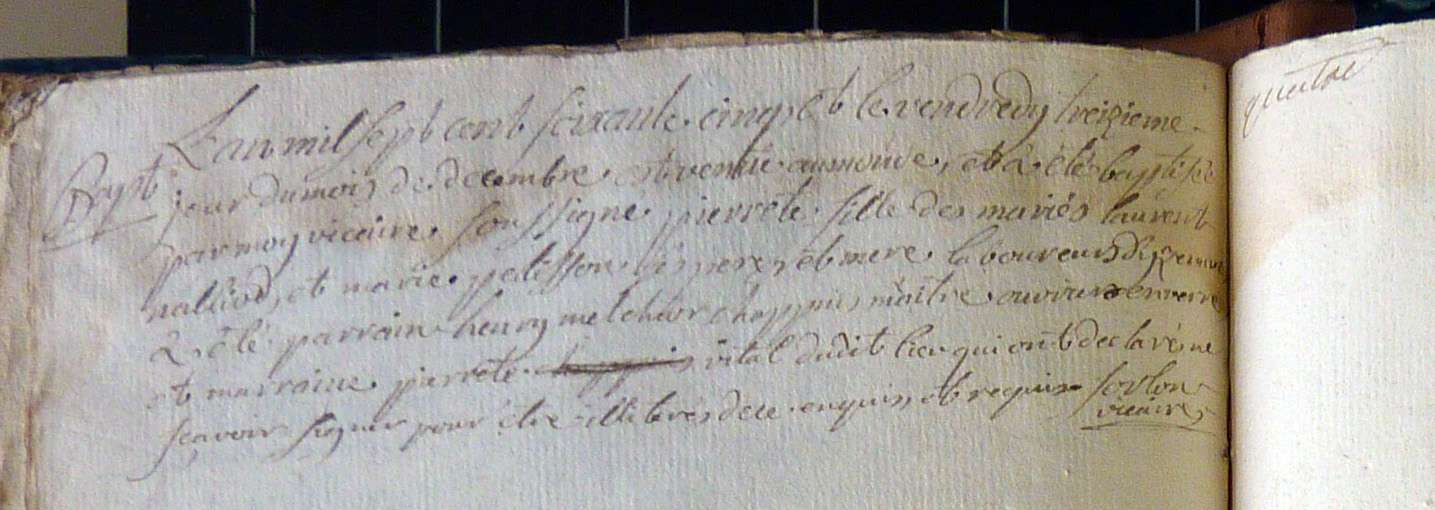 L'an mil sept cent soixante cinq et le vendredy treizieme
Bapt. jour du mois de decembre est venüe au monde, et a été baptisée
par moy vicaire soussigné pierrete fille des mariés laurent
et marie ses pere et mere laboureurs
a été parrain henry melchior chappuis maitre ouvrier en verre
et marraine pierrete vital dudit lieu qui ont declaré ne
sçavoir signer pour être illiterés de ce enquis et requis
vicaire